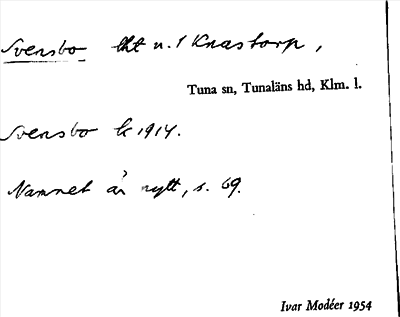 Svensbo lht u. 1 Knastorp,
Tuna sn, Tunaläns hd, Klm. l.
Svensbo k 1914.
Namnet är nytt, s. 69.
Ivar Modéer 1954